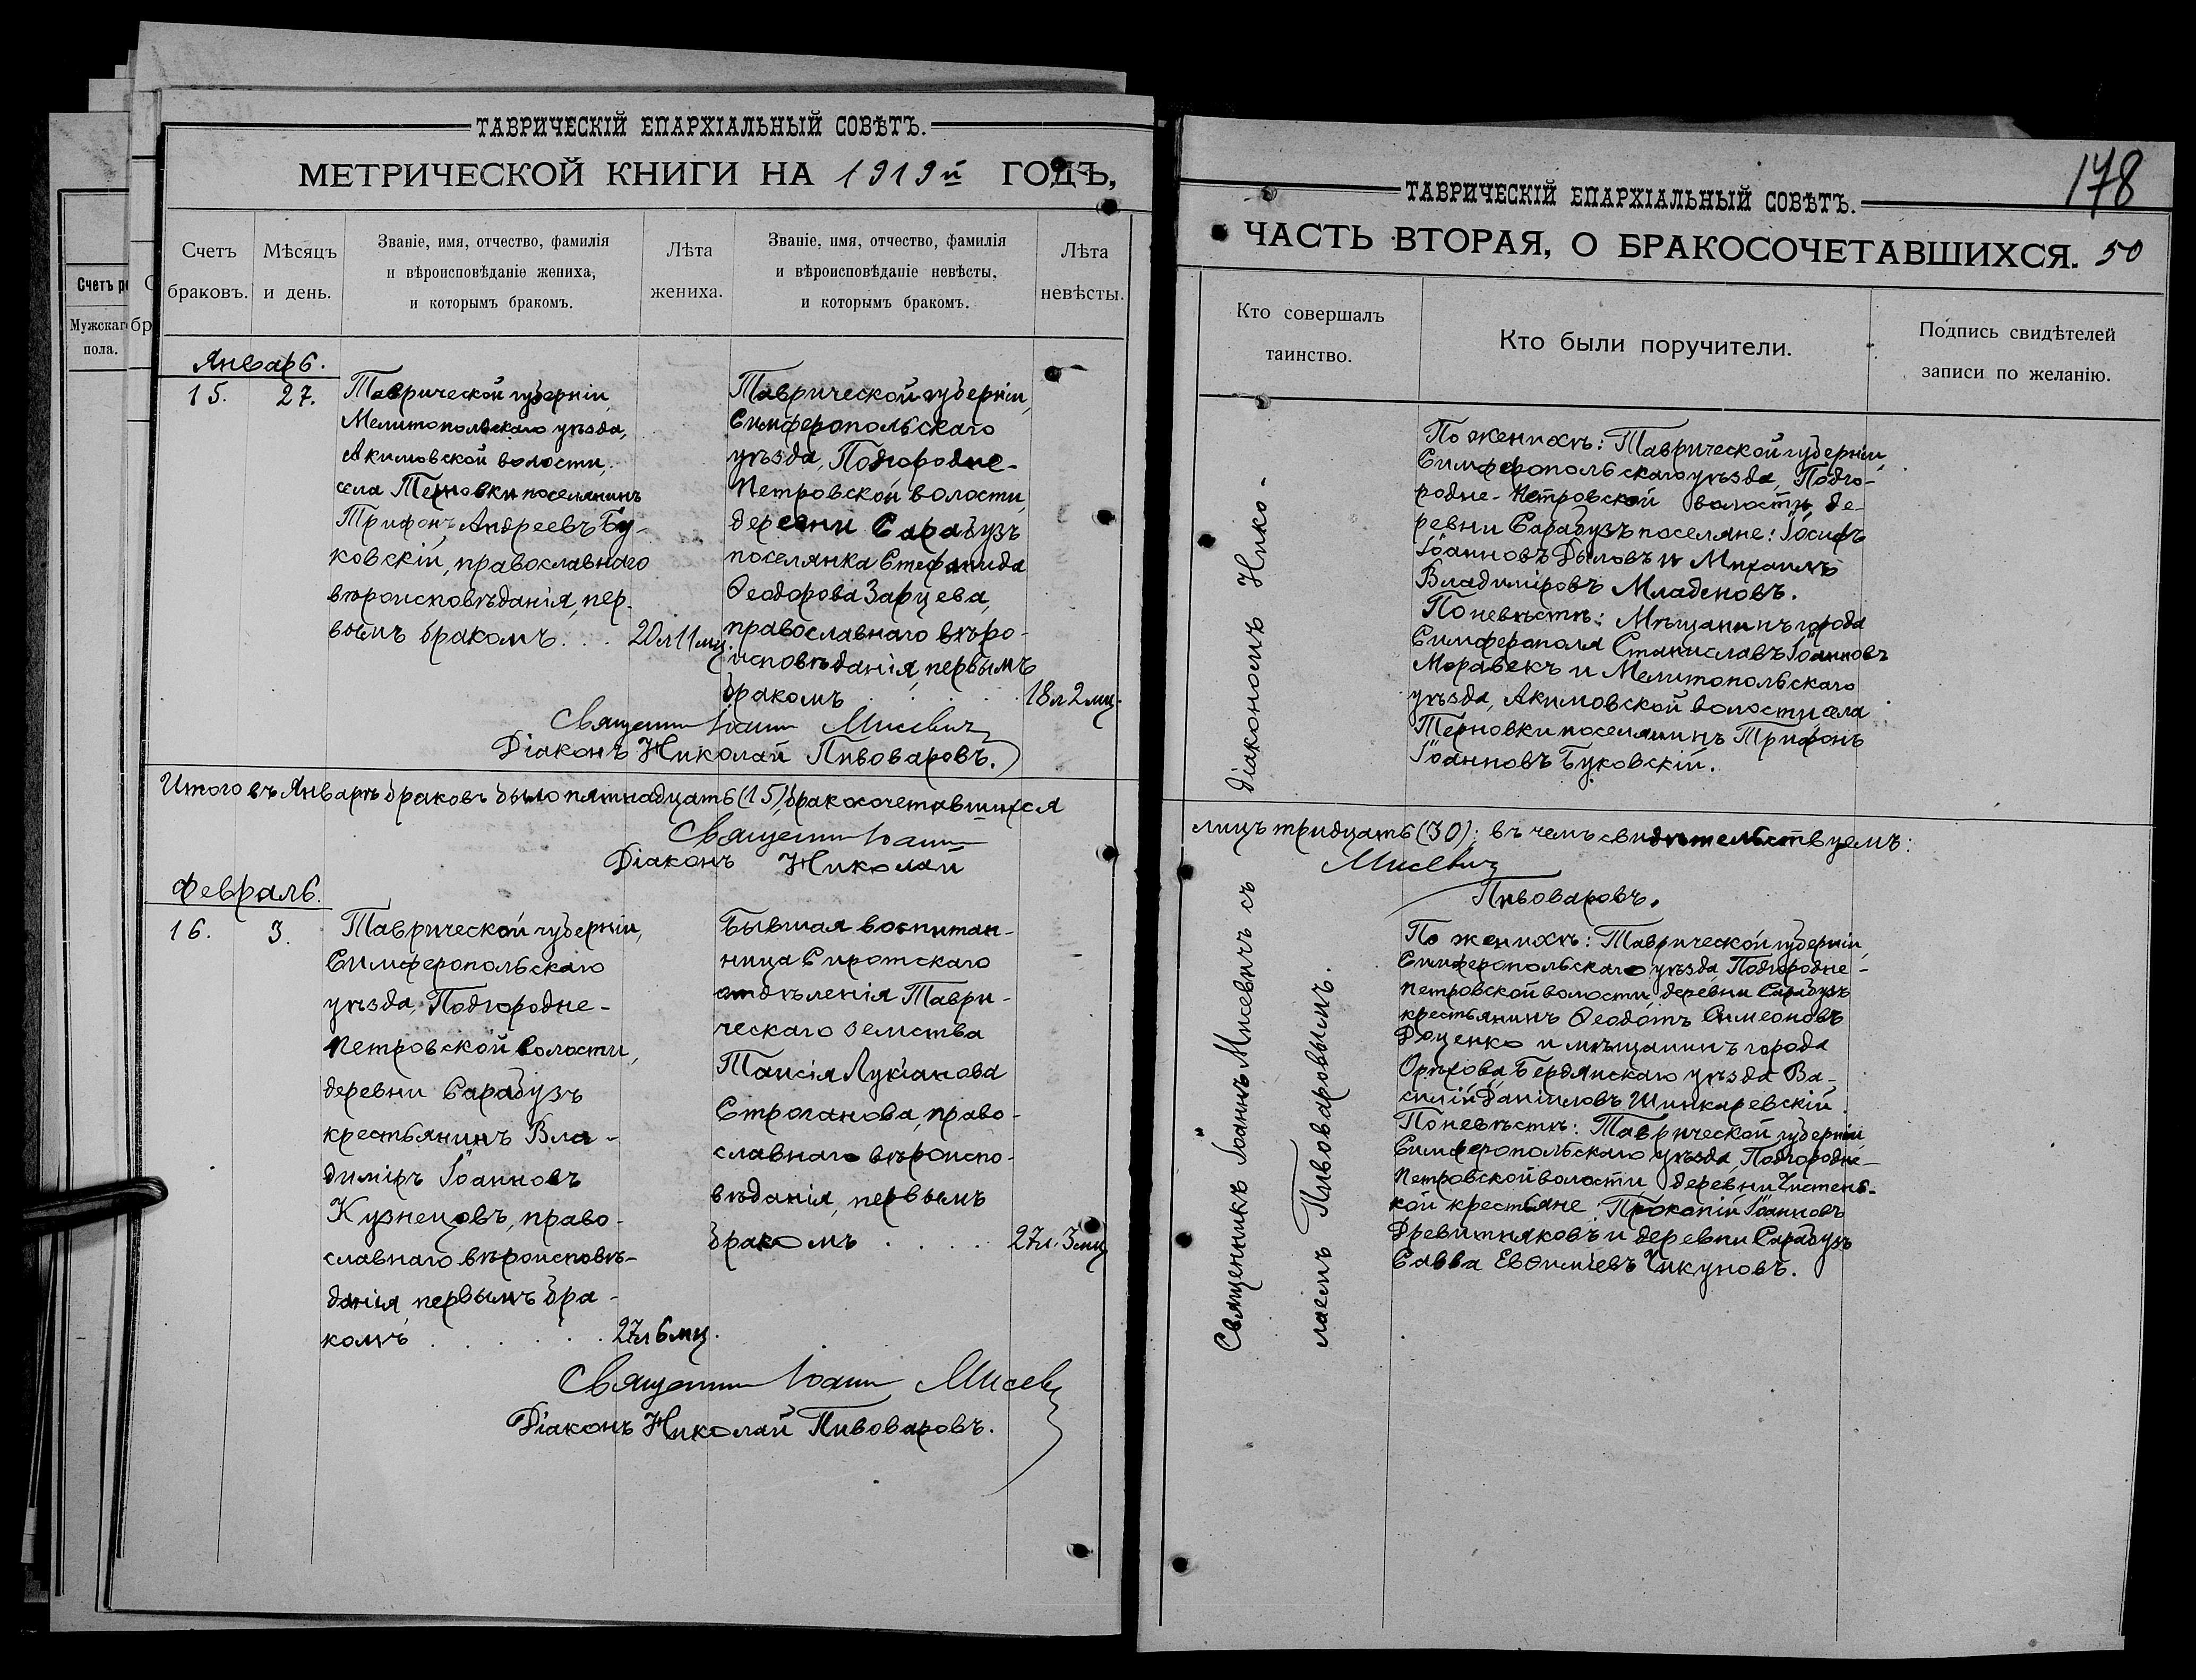 ТАВРИЧЕСКІЙ ЕПАРХІАЛЬНЫЙ СОВѢТЪ.
МЕТРИЧЕСКОЙ КНИГИ НА 1919й ГОДЪ,
Счетъ браковъ.
Мѣсяцъ и день.
Званіе, имя, отчество, фамилія
и вѣроисповѣданіе жениха,
и которымъ бракомъ.
Лѣта
жениха.
Званіе, имя, отчество, фамилія
и вѣроисповѣданіе невѣсты,
и которымъ бракомъ.
Лѣта
невѣсты.
Счетъ
Мужскаго
пола.
Январь.
15. 27.
Таврической губерніи,
Мелитопольскаго уѣзда,
Акимовской волости,
села Терновки поселянинъ
Трифонъ Андреевъ Бу-
ковскій, православнаго
вѣроисповѣданія, пер-
вымъ бракомъ . . .
20л 11мц.
Таврической губерніи,
Симферопольскаго
уѣзда, Подгородне-
Петровской волости,
деревни Сарабузъ
поселянка Стефанида
Ѳеодорова Зарцева,
православнаго вѣро-
исповѣданія, первымъ
бракомъ
18л 2мц.
Священник Іоанн Мисевич
Діаконъ Николай Пивоваровъ.
Итого въ Январѣ браковъ было пятнадцать (15), бракосочетавшихся
Священник Іоанн
Діаконъ Николай
Февраль.
16. 3.
Таврической губерніи,
Симферопольскаго
уѣзда, Подгородне-
Петровской волости,
деревни Сарабузъ
крестьянинъ Вла-
диміръ Іоанновъ
Кузнецовъ, право-
славнаго вѣроисповѣ-
данія, первымъ бра-
комъ . . . . .
27л 6мц.
Бывшая воспитан-
ница Сиротскаго
отдѣленія Таври-
ческаго земства
Таисія Лукіанова
Строганова, право-
славнаго вѣроиспо-
вѣданія, первымъ
бракомъ . . . .
27л. 3мц
Священник Іоанн Мисевич
Діаконъ Николай Пивоваровъ.
178
ТАВРИЧЕСКІЙ ЕПАРХІАЛЬНЫЙ СОВѢТЪ.
ЧАСТЬ ВТОРАЯ, О БРАКОСОЧЕТАВШИХСЯ. 50
Кто совершалъ
таинство.
Кто были поручители.
Подпись свидѣтелей
записи по желанію.
Священникъ Іоаннъ Мисевичъ съ Діакономъ Нико-
лаемъ Пивоваровымъ.
По женихѣ: Таврической губерніи,
Симферопольскаго уѣзда, Подго-
родне-Петровской волости, де-
ревни Сарабузъ поселяне: Іосифъ
Іоанновъ Дыловъ и Михаилъ
Владиміровъ Младеновъ.
По невѣстѣ: Мѣщанинъ города
Симферополя Станиславъ Іоанновъ
Моравекъ и Мелитопольскаго
уѣзда, Акимовской волости, села
Терновки поселянинъ Трифонъ
Іоанновъ Буковскій.
лицъ тридцать (30); въ чемъ свидѣтельствуемъ:
Мисевич
Пивоваровъ.
По женихѣ: Таврической губерніи,
Симферопольскаго уѣзда, Подгородне-
Петровской волости, деревни Сарабузъ
крестьянинъ Ѳеодотъ Симеоновъ
Доценко и мѣщанинъ города
Орѣхова, Бердянскаго уѣзда Ва-
силій Даніиловъ Шинкаревскій.
По невѣстѣ: Таврической губерніи,
Симферопольскаго уѣзда, Подгородне-
Петровской волости, деревни Чистень-
кой крестьяне: Прокопій Іоанновъ
Древитняковъ и деревни Сарабузъ
Савва Евѳиміевъ Чикуновъ.